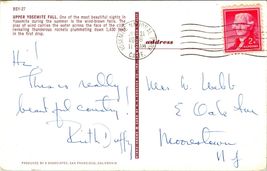 BSY-27
UPPER YOSEMITE FALL. One of the most beautiful sights in
Yosemite during the summer is the wind-blown falls. The
play of wind carries the water across the face of the cliff,
revealing thunderous rockets plummeting down 1,430 feet
in the first drop.
address
Hi!
This is really
beautiful country!
Ruth Duffy
Mrs W. Cubb
E Oak Ave
Moorestown
N J
SAN FRANCISCO, CALIFORNIA